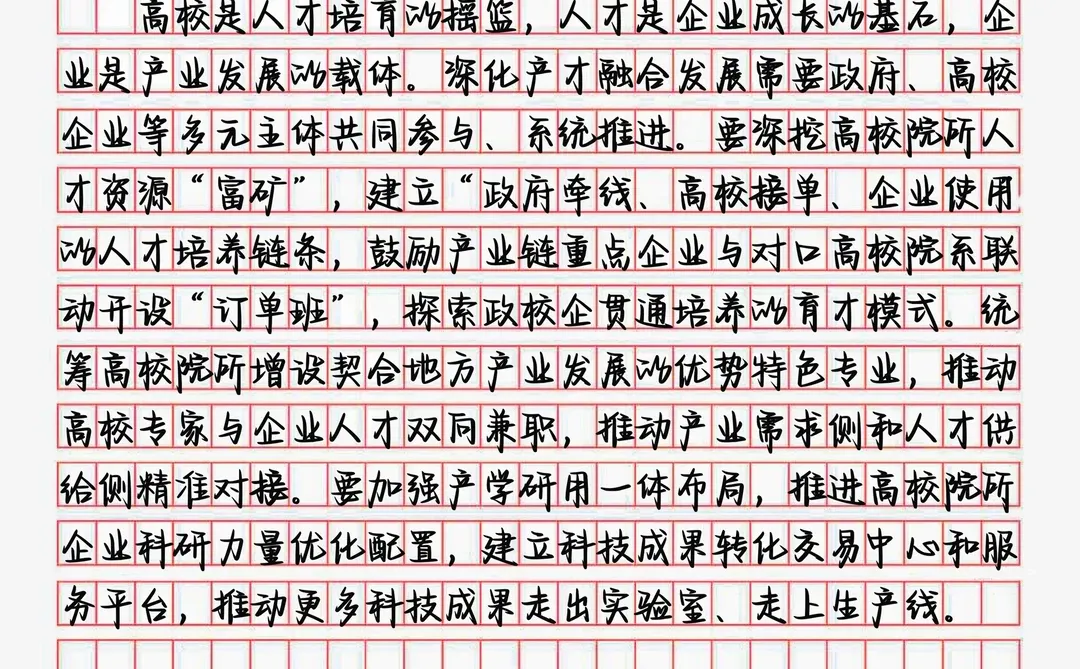 高校是人才培育的摇篮，人才是企业成长的基石，企
业是产业发展的载体。深化产才融合发展需要政府、高校
企业等多元主体共同参与、系统推进。要深挖高校院所人
才资源“富矿”，建立“政府牵线、高校接单、企业使用
的人才培养链条，鼓励产业链重点企业与对口高校院系联
动开设“订单班”，探索政校企贯通培养的育才模式。统
筹高校院所增设契合地方产业发展的优势特色专业，推动
高校专家与企业人才双向兼职，推动产业需求侧和人才供
给侧精准对接。要加强产学研用一体布局，推进高校院所
企业科研力量优化配置，建立科技成果转化交易中心和服
务平台，推动更多科技成果走出实验室、走上生产线。